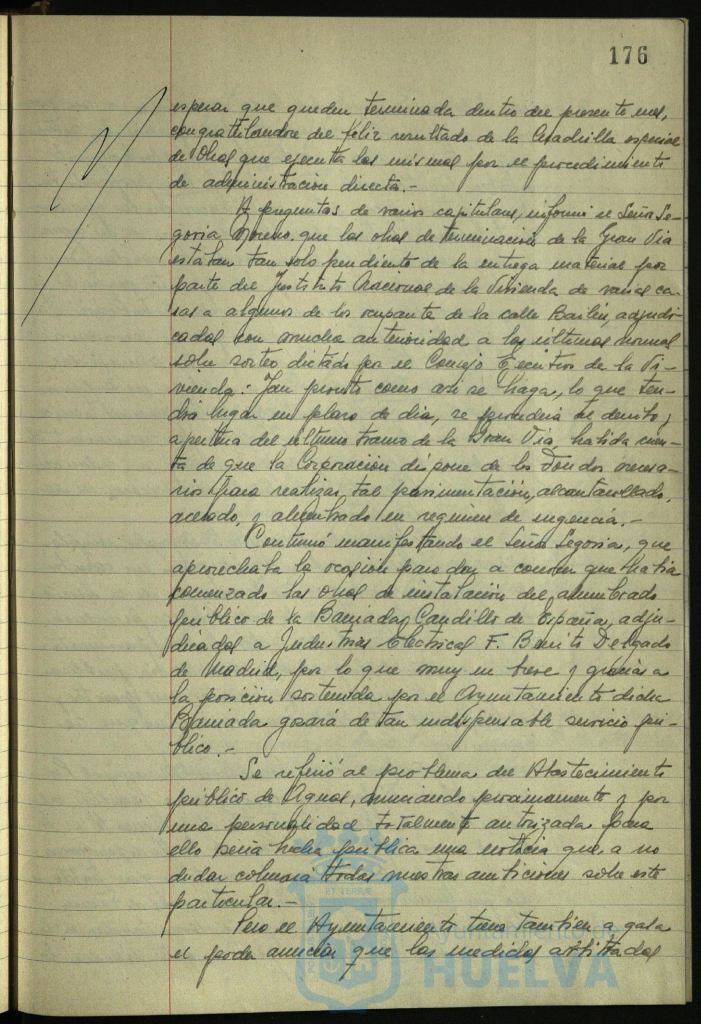 176
esperar que queden terminada dentro del presente mes,
congratulandose del feliz resultado de la Cuadrilla especial
de Obras que ejecuta las mismas por el procedimiento
de administracion directa.-
A preguntas de varios capitulares, informó el Señor Se-
govia Moreno que las obras de terminacion de la Gran Via
estaban tan solo pendiente de la entrega material por
parte del Instituto Nacional de la Vivienda de varias ca-
sas a algunos de los ocupante de la calle Bailén, adjudi-
cadas con mucha anterioridad a las últimas normas
sobre sorteo dictadas por el Consejo Ejecutivo de la Vi-
vienda: Tan pronto como asi se haga, lo que ten-
drá lugar en plazo de dias, se procederá al derribo y
apertura del último tramo de la Gran Via, habida cuen-
ta de que la Corporacion dispone de los fondos necesa-
rios para realizar tal pavimentación, alcantarillado,
acerado, y alumbrado en regimen de urgencia.-
Continuó manifestando el Señor Segovia, que
aprovechaba la ocasión para dar a conocer que habia
comenzado las obras de instalación del alumbrado
público de la Barriada Caudillo de España, adju-
dicadas a Industrias Electricas F. Benito Delgado
de Madrid, por lo que muy en breve y gracias a
la posición sostenida por el Ayuntamiento dicha
Barriada gozará de tan indispensable servicio pú-
blico.-
Se refirió al problema del Abastecimiento
público de Aguas, anunciando proximamente y por
una personalidad totalmente autorizada para
ello seria hecha pública una noticia que, a no
dudar colmará todas nuestras ambiciones sobre este
particular.-
Pero el Ayuntamiento tiene tambien a gala
el poder anunciar que las medidas arbitradas
HUELVA